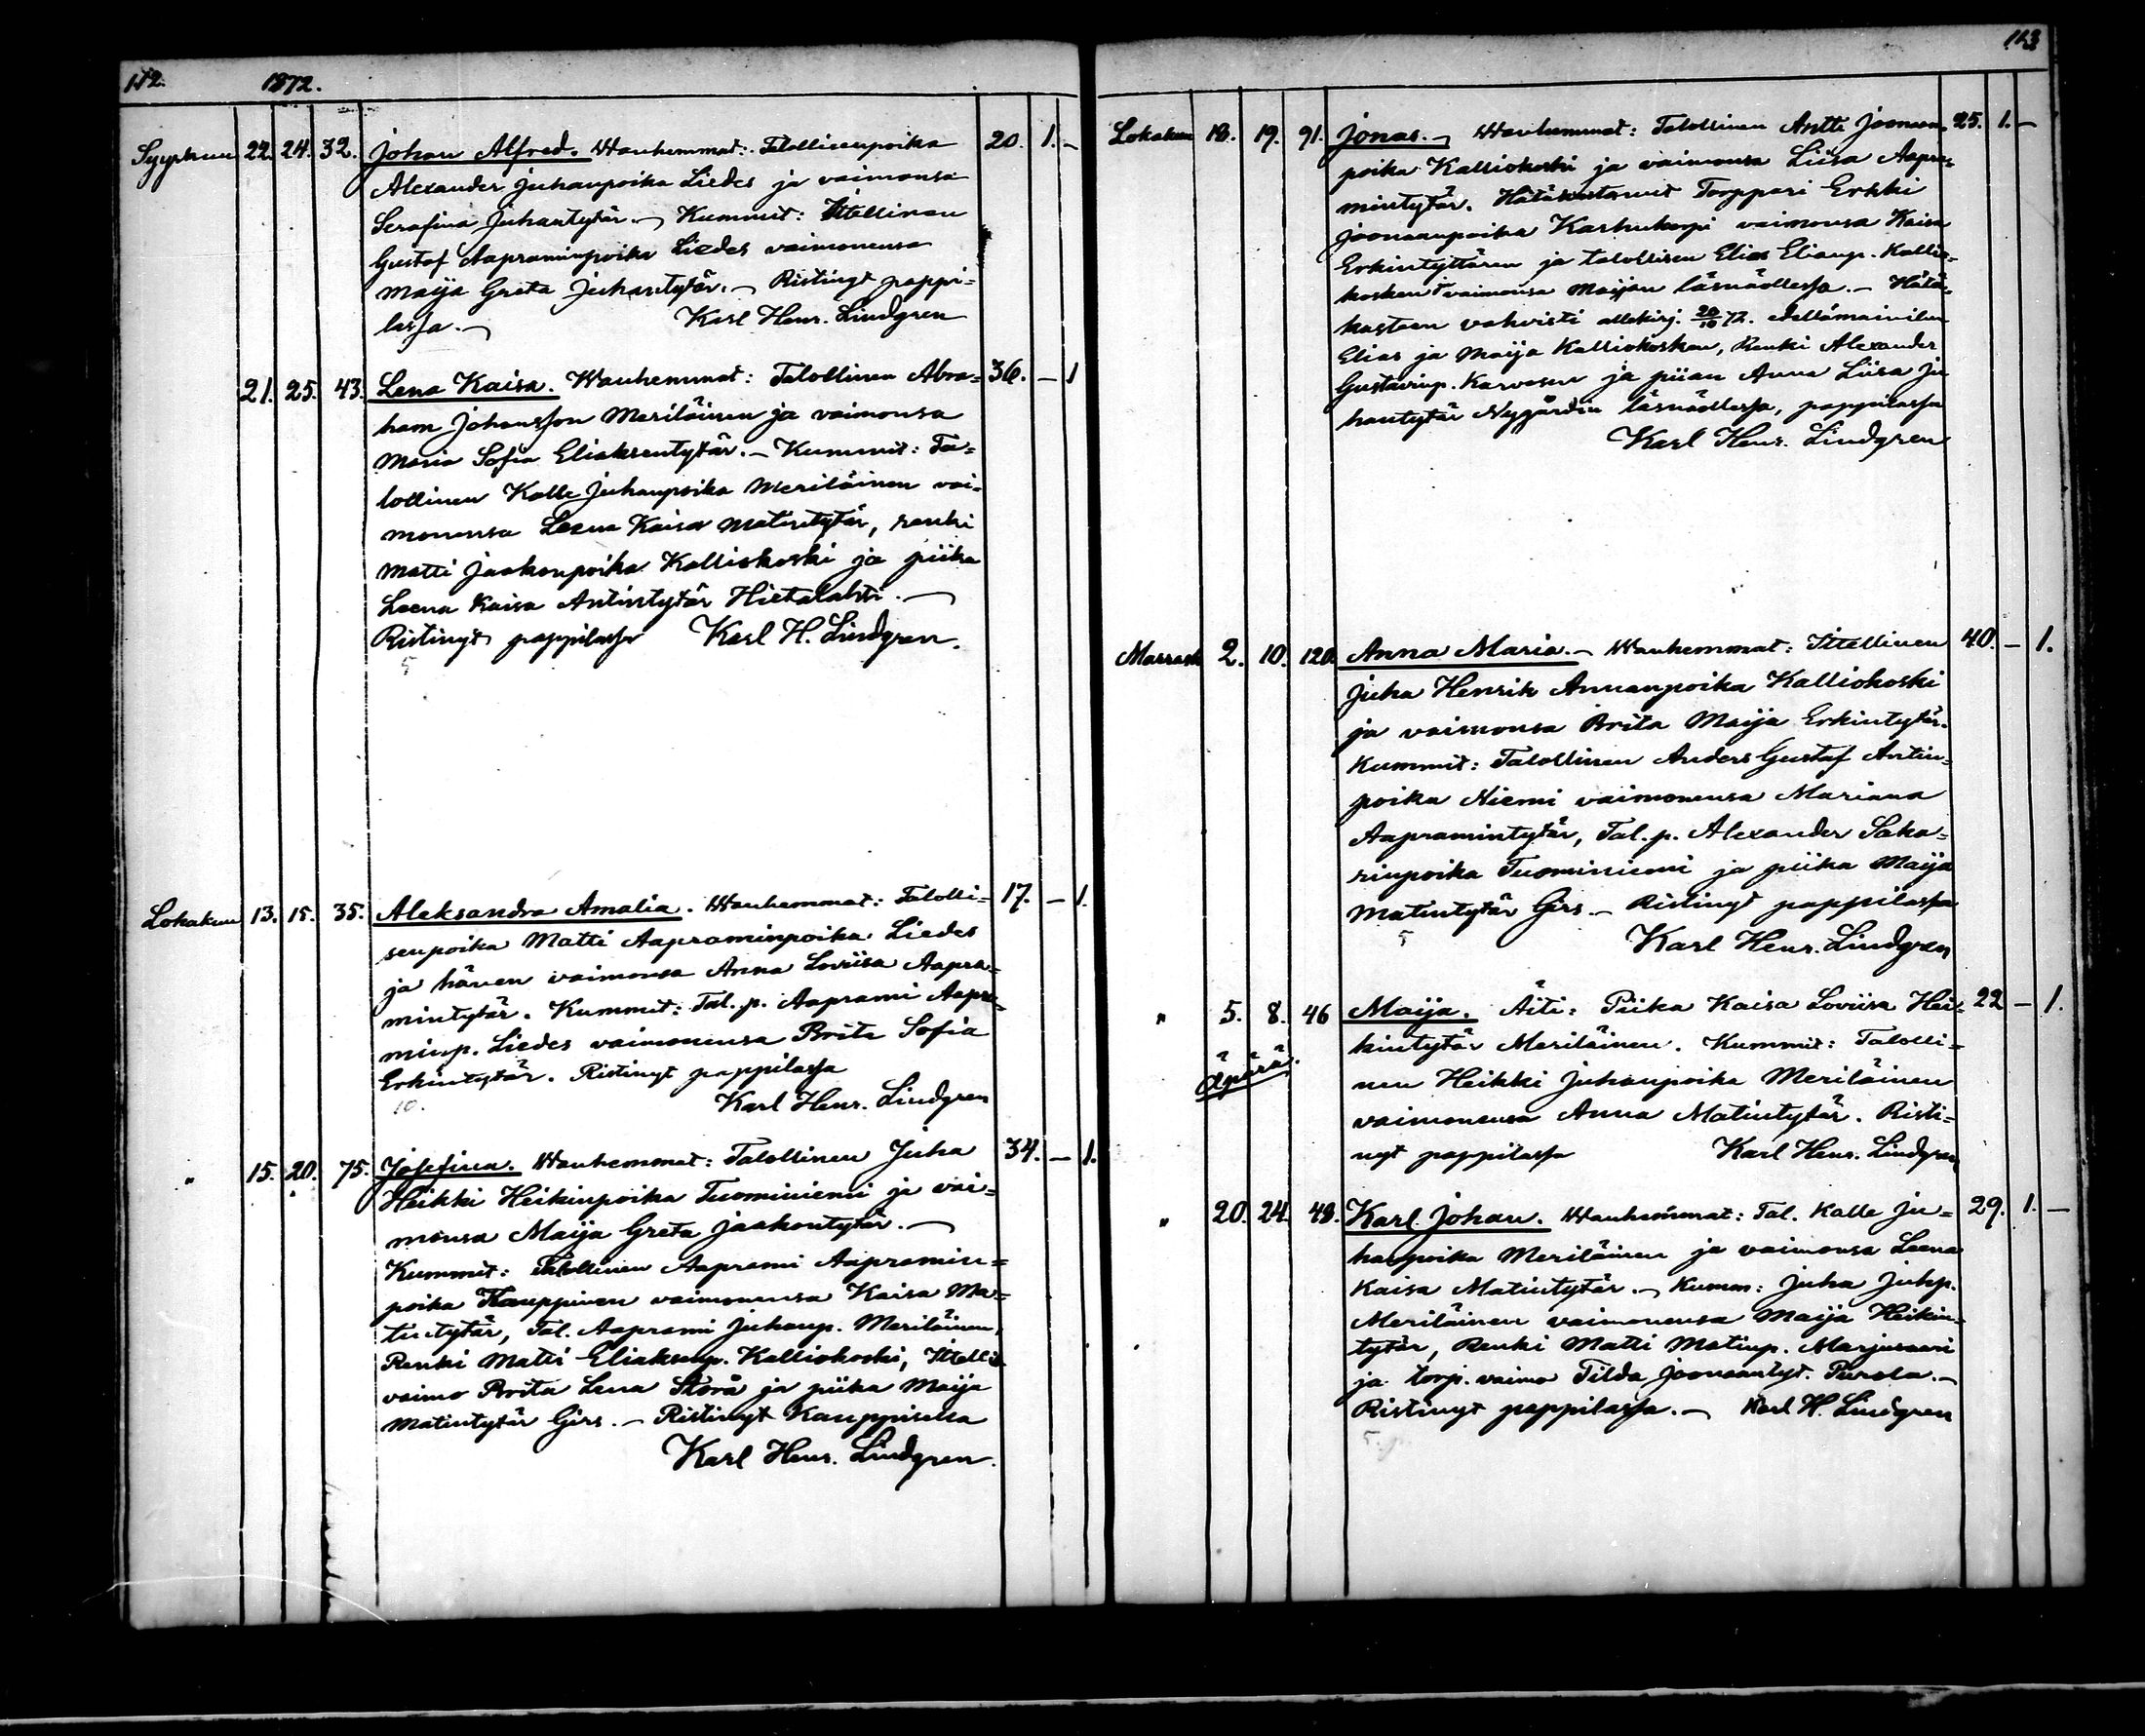 112. 1872.
Syyskuu 22. 24. 32. Johan Alfred. Wanhemmat: Talollisenpoika 20. 1. –
Alexander Juhanpoika Liedes ja vaimonsa
Serafina Juhantytär. – Kummit: Itellinen
Gustaf Aapraminpoika Liedes vaimonensa
Maija Greta Juhantytär. – Ristinyt pappi=
lassa. – Karl Henr. Lindgren
21. 25. 43. Lena Kaisa. Wanhemmat: Talollinen Abra= 36. – 1
ham Johansson Meriläinen ja vaimonsa
Maria Sofia Eliaksentytär. – Kummit: Ta=
lollinen Kalle Juhanpoika Meriläinen vai=
monensa Leena Kaisa Matintytär, renki
Matti Jaakonpoika Kalliokoski ja piika
Leena Kaisa Antintytär Hietalahti. –
Ristinyt pappilassa Karl H. Lindgren.
5
Lokakuu 13. 15. 35. Aleksandra Amalia. Wanhemmat: Talolli= 17. – 1.
senpoika Matti Aapraminpoika Liedes
ja hänen vaimonsa Anna Loviisa Aapra=
mintytär. Kummit: Tal. p. Aaprami Aapra=
minp. Liedes vaimonensa Brita Sofia
Erkintytär. Ristinyt pappilassa
10. Karl Henr. Lindgren
" 15. 20. 75. Josefina. Wanhemmat: Talollinen Juha 34. – 1.
Heikki Heikinpoika Tuominiemi ja vai=
monsa Maija Greta Jaakontytär. –
Kummit: Talollinen Aaprami Aapramin=
poika Kauppinen vaimonensa Kaisa Ma=
tintytär, Tal. Aaprami Juhanp. Meriläinen,
Renki Matti Eliaksenp. Kalliokoski, Itellis
vaimo Brita Lena Storå ja piika Maija
Matintytär Girs. – Ristinyt Kauppisella
Karl Henr. Lindgren.
113
Lokakuu 18. 19. 91. Jonas. – Wanhemmat: Talollinen Antti Joonaan= 25. 1. –
poika Kalliokoski ja vaimonsa Liisa Aapra=
mintytär. Hätäkastanut Torppari Erkki
Joonaanpoika Karhukorpi vaimonsa Kaisa
Erkintyttären ja talollisen Elias Elianp. Kallio=
kosken vaimonsa Maijan läsnäollessa. – Hätä=
kasteen vahvisti allekirj. 20/10 72. edellämainitun
Elias ja Maija Kalliokosken, Renki Alexander
Gustavinp. Karvosen ja piian Anna Liisa Ju
hantytär Nygårdin läsnäollessa, pappilassa
Karl Henr. Lindgren
Marrask 2. 10. 120. Anna Maria. – Wanhemmat: Itellinen 40. – 1.
Juha Henrik Annanpoika Kalliokoski
ja vaimonsa Brita Maija Erkintytär.
Kummit: Talollinen Anders Gustaf Antin=
poika Niemi vaimonensa Mariana
Aapramintytär, Tal. p. Alexander Saka=
rinpoika Tuominiemi ja piika Maija
Matintytär Girs. – Ristinyt pappilassa
5 Karl Henr. Lindgren
" 5. 8. 46 Maija. Äiti: Piika Kaisa Loviisa Hei= 22 – 1.
kintytär Meriläinen. Kummit: Talolli=
Äpärä. nen Heikki Juhanpoika Meriläinen
vaimonensa Anna Matintytär. Risti=
nyt pappilassa Karl Henr. Lindgren
" 20. 24. 48. Karl Johan. Wanhemmat: Tal. Kalle Ju= 29. 1. –
hanpoika Meriläinen ja vaimonsa Leena
Kaisa Matintytär. – Kumm: Juha Juhp.
Meriläinen vaimonensa Maija Heikin=
tytär, Renki Matti Matinp. Marjusaari
ja torp. vaimo Tilda Joonaantyt. Purola. –
Ristinyt pappilassa. – Karl H. Lindgren
5. p.